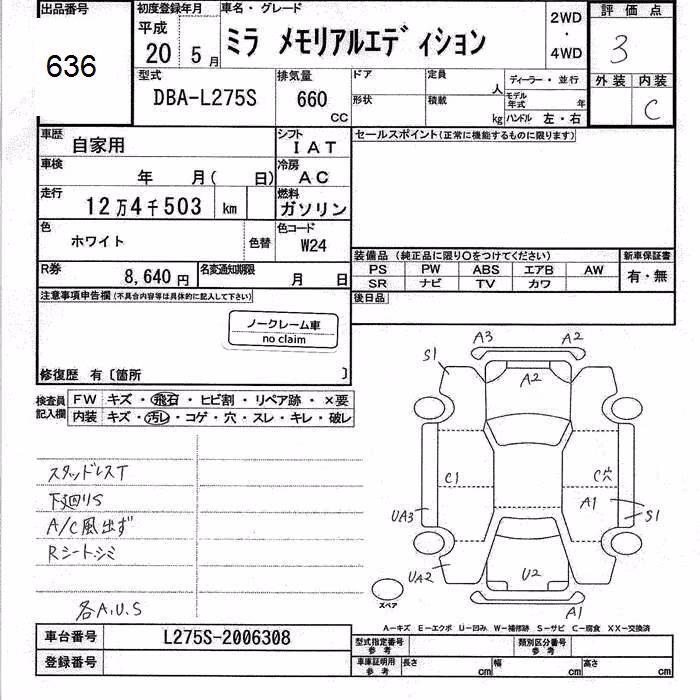 出品番号
636
初度登録年月
平成
20 5 月
車名・グレード
ミラ メモリアルエディション
2WD
・
4WD
評価点
3
外装 内装
C
型式
DBA-L275S
排気量
660
CC
ドア
形状
定員
人
積載
kg
ディーラー・並行
モデル年式 年
ハンドル 左・右
車歴
自家用
シフト
IAT
セールスポイント(正常に機能するものに限ります)
車検
年 月( 日)
冷房
AC
走行
12万4千503 km
燃料
ガソリン
色
ホワイト
色替
色コード
W24
装備品 (純正品に限り○をつけてください)
PS PW ABS エアB AW
SR ナビ TV カワ
新車保証書
有・無
R券
8,640 円
名変通知期限
月 日
後日品
注意事項申告欄(不具合内容等は具体的に記入して下さい)
ノークレーム車
no claim
修復歴 有〔箇所 〕
検査員記入欄
FW キズ・飛石・ヒビ割・リペア跡・×要
内装 キズ・汚レ・コゲ・穴・スレ・キレ・破レ
スタッドレスT
下廻りS
A/C風出ず
Rシートシミ
各A.U.S
A3 A2
S1
A2
C1
C穴
A1
UA3
S1
UA2
U2
A1
スペア
A-キズ E-エクボ U-凹み W-補修跡 S-サビ C-腐食 XX-交換済
車台番号
L275S-2006308
登録番号
型式指定番号
参考
類別区分番号
参考
車庫証明用
参考
長さ cm
幅 cm
高さ cm